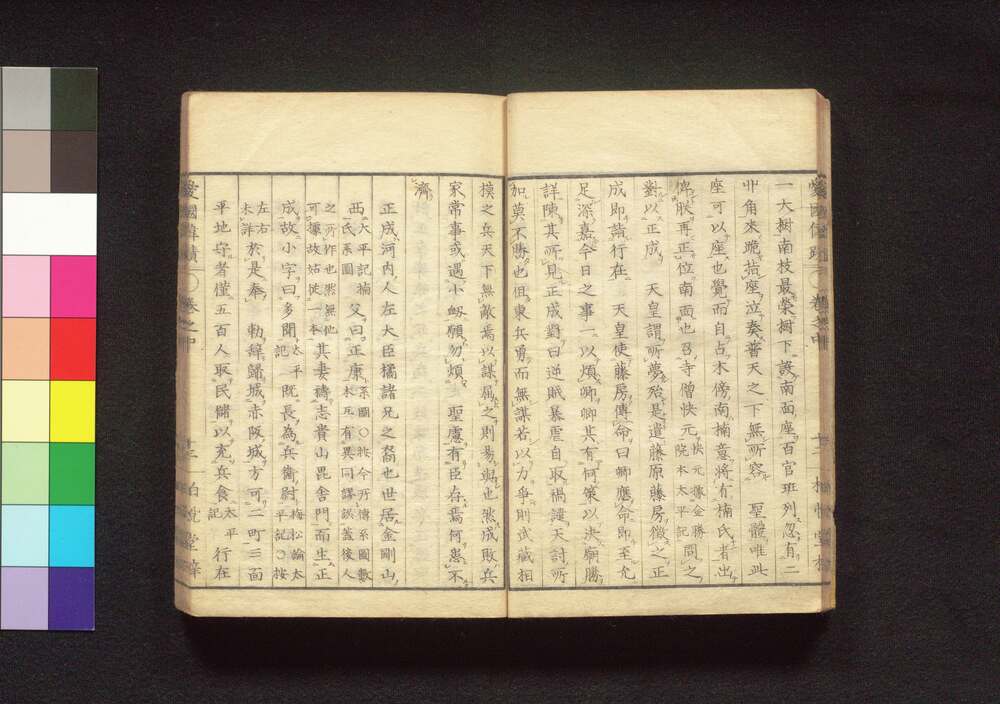 一大樹南枝最榮樹下設南面座百官班列忽有二
丱角來跪指座泣奏普天之下無所容 聖體唯此
座可以座也覺而自占木傍南楠意將有楠氏者出
俾朕再正位南面也召寺僧快元快元據金勝院本太平記問之
對以正成 天皇謂所夢殆是遣藤原藤房徵之正
成即詣行在 天皇使藤房傳命曰卿應命即至允
足深嘉今日之事一以煩卿卿其有何策以決廟勝
詳陳其所見正成對曰逆賊暴虐自取禍譴天討所
加莫不勝也但東兵勇而無謀若以力爭則武藏相
摸之兵天下無敵焉以謀屈之則易與也然成敗兵
家常事或遇小衂願勿煩 聖慮有臣在焉何患不
濟
正成河内人左大臣橘諸兄之裔也世居金剛山
西太平記楠氏系圖父曰正康系圖〇按今所傳系圖數本互有異同謬誤蓋後人之所作也然無他可據故姑從一本其妻禱志貴山毘舍門而生正
成故小字曰多聞太平記既長為兵衞尉梅松論太平記〇按左右未詳於是奉 勅辭歸城赤阪城方可二町三面
平地守者僅五百人取民儲以充兵食太平記 行在
愛國偉蹟 卷之中 十三